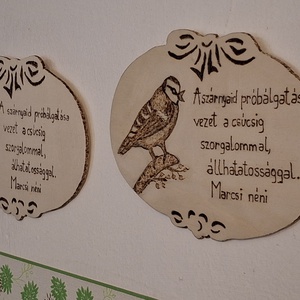 A szárnyaid próbálgatása
vezet a csúcsig
szorgalommal,
állhatatossággal.
Marcsi néni
A szárnyaid próbálgatás
vezet a csúcsig
szorgalommal,
állhatatossággal.
Marcsi néni